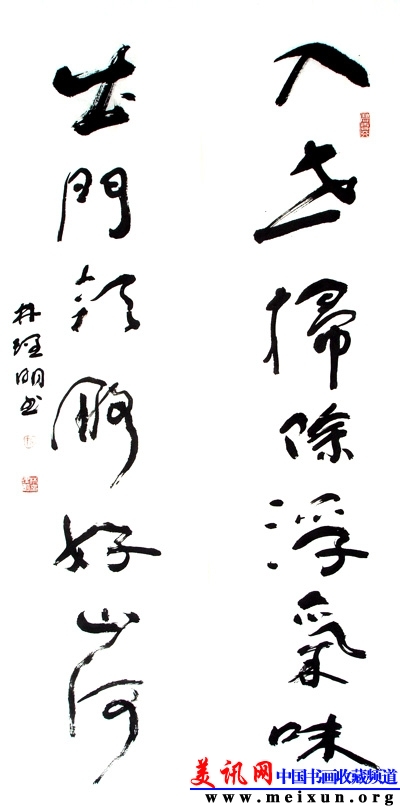 入世掃除浮氣味
出門領略好山河
朴經明书
美讯网 中国书画收藏频道
www.meixun.org